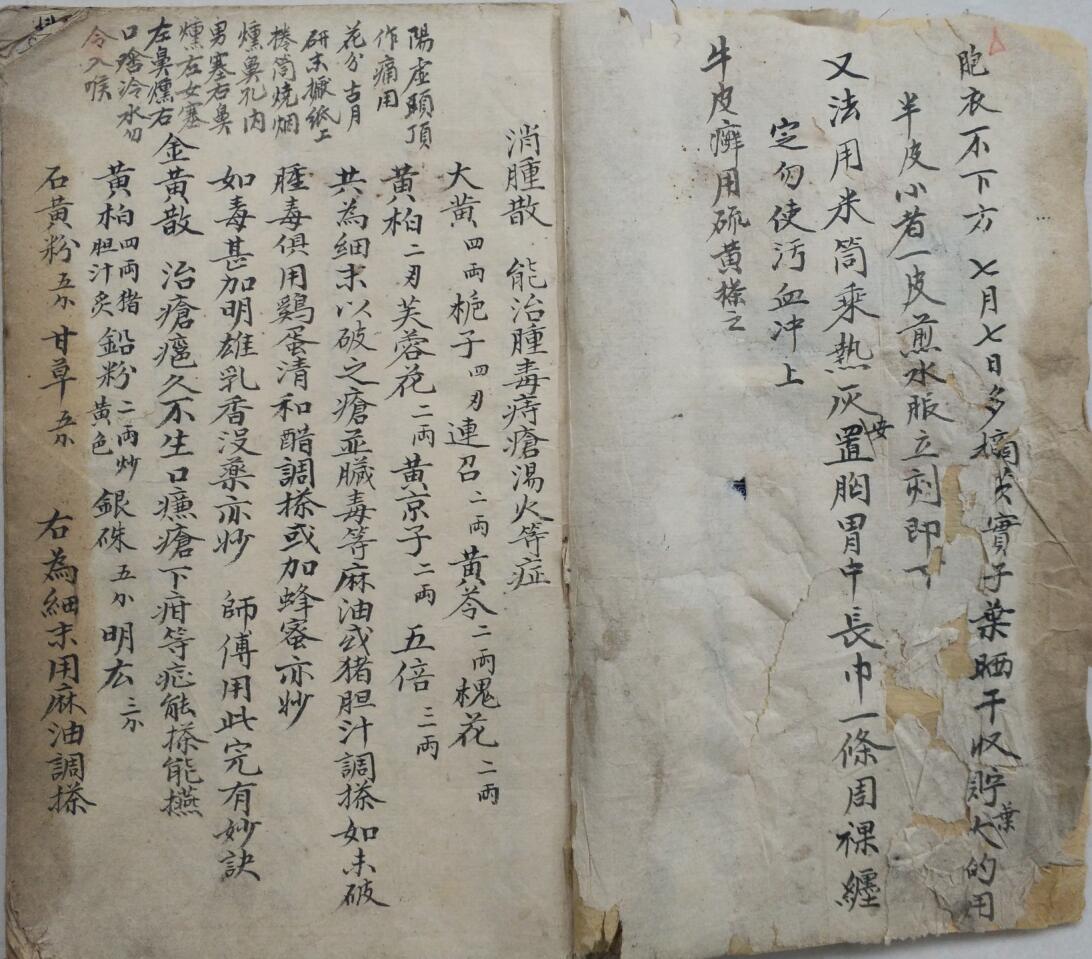 胞衣不下方 七月七日多摘芡實子葉晒干收貯大的用
葉
半皮小者一皮煎水服立刻即下
又法用米筒乘熱灰置胸胃中長巾一條周裸纏
安
定勿使汚血冲上
牛皮癬用硫黄搽之
消腫散 能治腫毒痔瘡湯火等症
大黄四兩梔子四刃連召二兩黄芩二兩槐花二兩
黄柏二刃芙蓉花二兩黄京子二兩 五倍三兩
共為細末以破之瘡並臟毒等麻油或猪胆汁調搽如未破
腫毒俱用鷄蛋清和醋調搽或加蜂蜜亦妙
如毒甚加明雄乳香没藥亦妙 師傅用此完有妙訣
金黄散 治瘡疤久不生口臁瘡下疳等症能搽能搽
黄柏四兩猪胆汁炙鉛粉二兩炒黄色銀硃五小明玄三小
石黄粉五小甘草五小 右為細末用麻油調搽
陽虚頭頂
作痛用
花分古月
研末摋紙上
捲筒燒烟
燻鼻孔内
男塞右鼻
燻左女塞
左鼻燻右
口啥冷水勿
令入喉